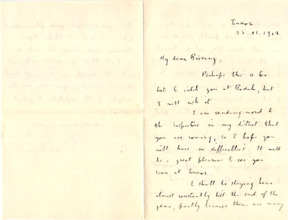 My dear
Perhaps this is too
late to catch you at
but
I will risk it.
I am sending word to
the inspectors in my district that
you are coming, so I hope you
will have no difficulties. It will
be a great pleasure to see you
soon at
I shall be staying here
almost constantly till the end of the
year, partly because there are many